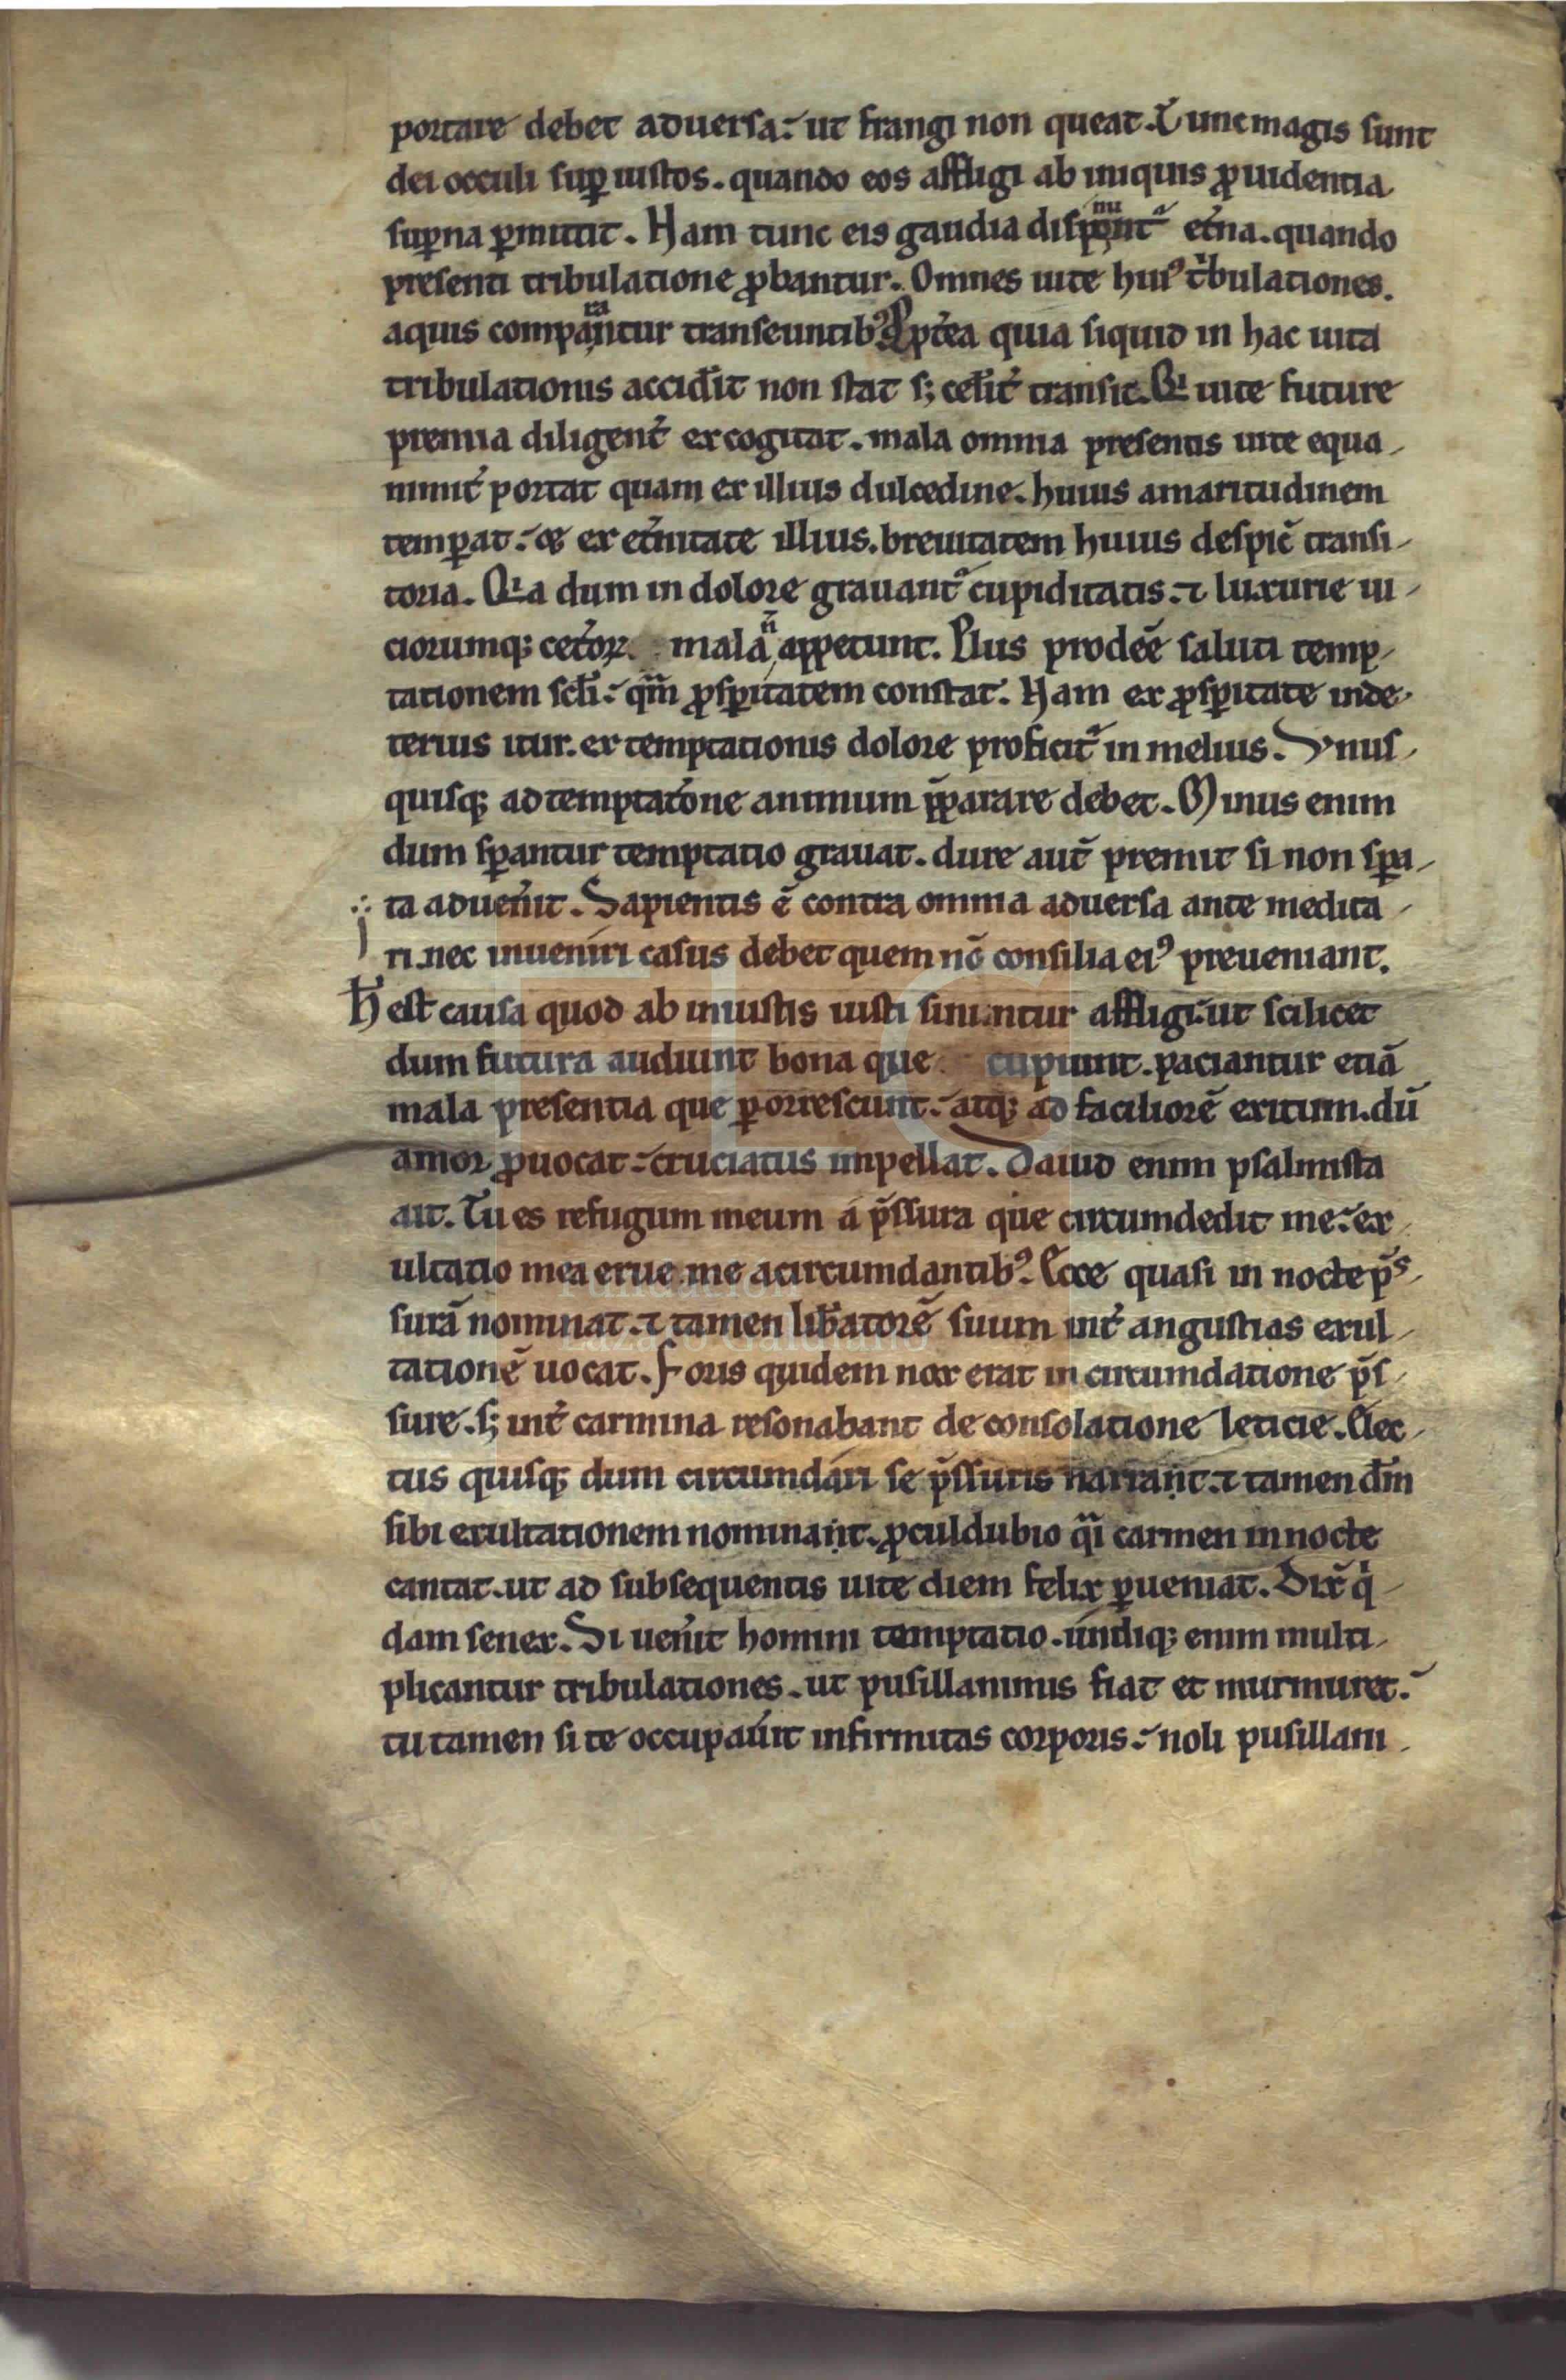 portare debet aduersa. ut frangi non queat. Tunc magis sunt
dei occuli sup̱ iustos. quando eos affligi ab iniquis ꝓuidentia
sup̱na ꝑmittit. Nam tunc eis gaudia et̾na. quando
presenti tribulatione ꝓbantur. Omnes uite huiꝰ tⁱbulationes.
aquis transeuntibꝰ. ꝓpt̾ea quia siquid in hac uita
tribulationis accid̾it non stat sꝫ celit̾ transit. Qi uite future
premia diligent̾ excogitat. mala omnia presentis uite equa
nimit̾ portat quam ex illius dulcedine. huius amaritudinem
temꝑat. & ex et̾nitate illius. breuitatem huius despic̄ transi
toria. Qia dum in dolore grauant᷑ cupiditatis. ⁊ luxurie ui
ciorumqꝫ cet̾oꝝ mala n̄ appetunt. Plus prodeē saluti temp
tationem scl̄i. qm̄ ꝓsꝑitatem constat. Nam ex ꝓsꝑitate inde
terius itur. ex temptationis dolore proficit᷑ in melius. Vnus
quisqꝫ ad temptat̾one animum p̄parare debet. Minus enim
dum sꝑantur temptatio grauat. dure aut̄ premit si non sꝑa
ta aduen̾it. Sapientis ē contra omnia aduersa ante medita
ri. nec inueniri casus debet quem nō consilia eiꝰ preueniant.
H̄ est causa quod ab iniustis iusti sinuntur affligi. ut scilicet
dum futura audiunt bona que cupiunt. paciantur etiā
mala presentia que ꝑorrescunt. atqꝫ ad faciliorē exitum. dū
amor ꝓuocat. cruciatus impellat. Dauid enim psalmista
ait. Tu es refugum meum a p̄ssura que circumdedit me. ex
ultatio mea erue me acircumdantibꝰ. Ecce quasi in nocte p̄s
surā nominat. ⁊ tamen lib̾atorē suum int̾ angustias exul
tationē uocat. Foris quidem nox erat in circumdatione p̄s
sure. sꝫ int̾ carmina resonabant de consolatione leticie. Elec
tus quisqꝫ dum circumdari se p̄ssuris narrant. ⁊ tamen dm̄
sibi exultationem nominant. ꝓculdubio q̄i carmen in nocte
cantat. ut ad subsequentis uite diem felix ꝑueniat. Dix̄ qⁱ
dam senex. Si uen̾it homini temptatio. undiqꝫ enim multi
plicantur tribulationes. ut pusillanimis fiat et murmuret.
tu tamen si te occupau̾it infirmitas corporis. noli pusillani
Fundación
Lázaro Galdiano